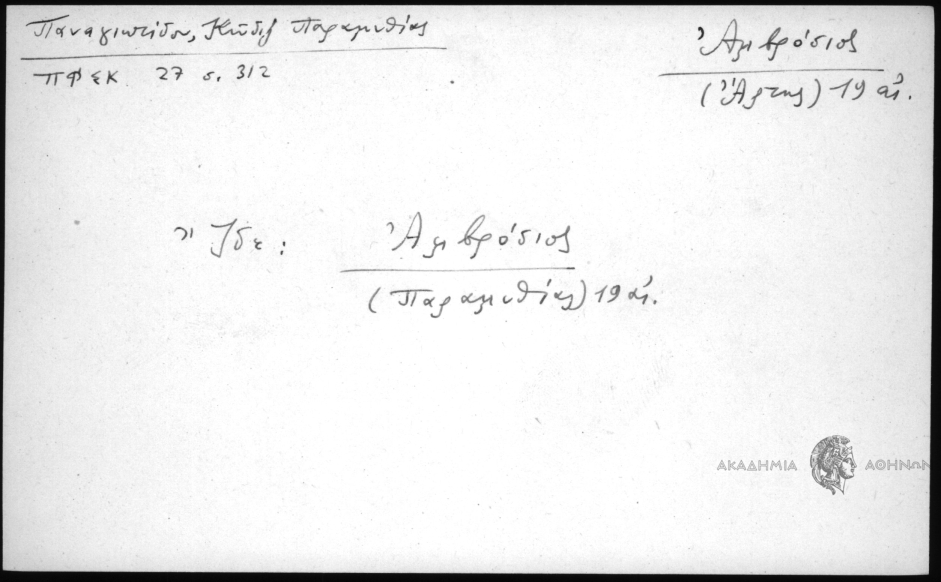 Παναγιωτίδου, Κῶδιξ Παραμυθίας
ΠΦΣΚ 27 σ. 312
Ἀμβρόσιος
(Ἄρτης) 19 αἰ.
Ἴδε: Ἀμβρόσιος
(Παραμυθίας) 19 αἰ.
ΑΚΑΔΗΜΙΑ ΑΘΗΝΩΝ